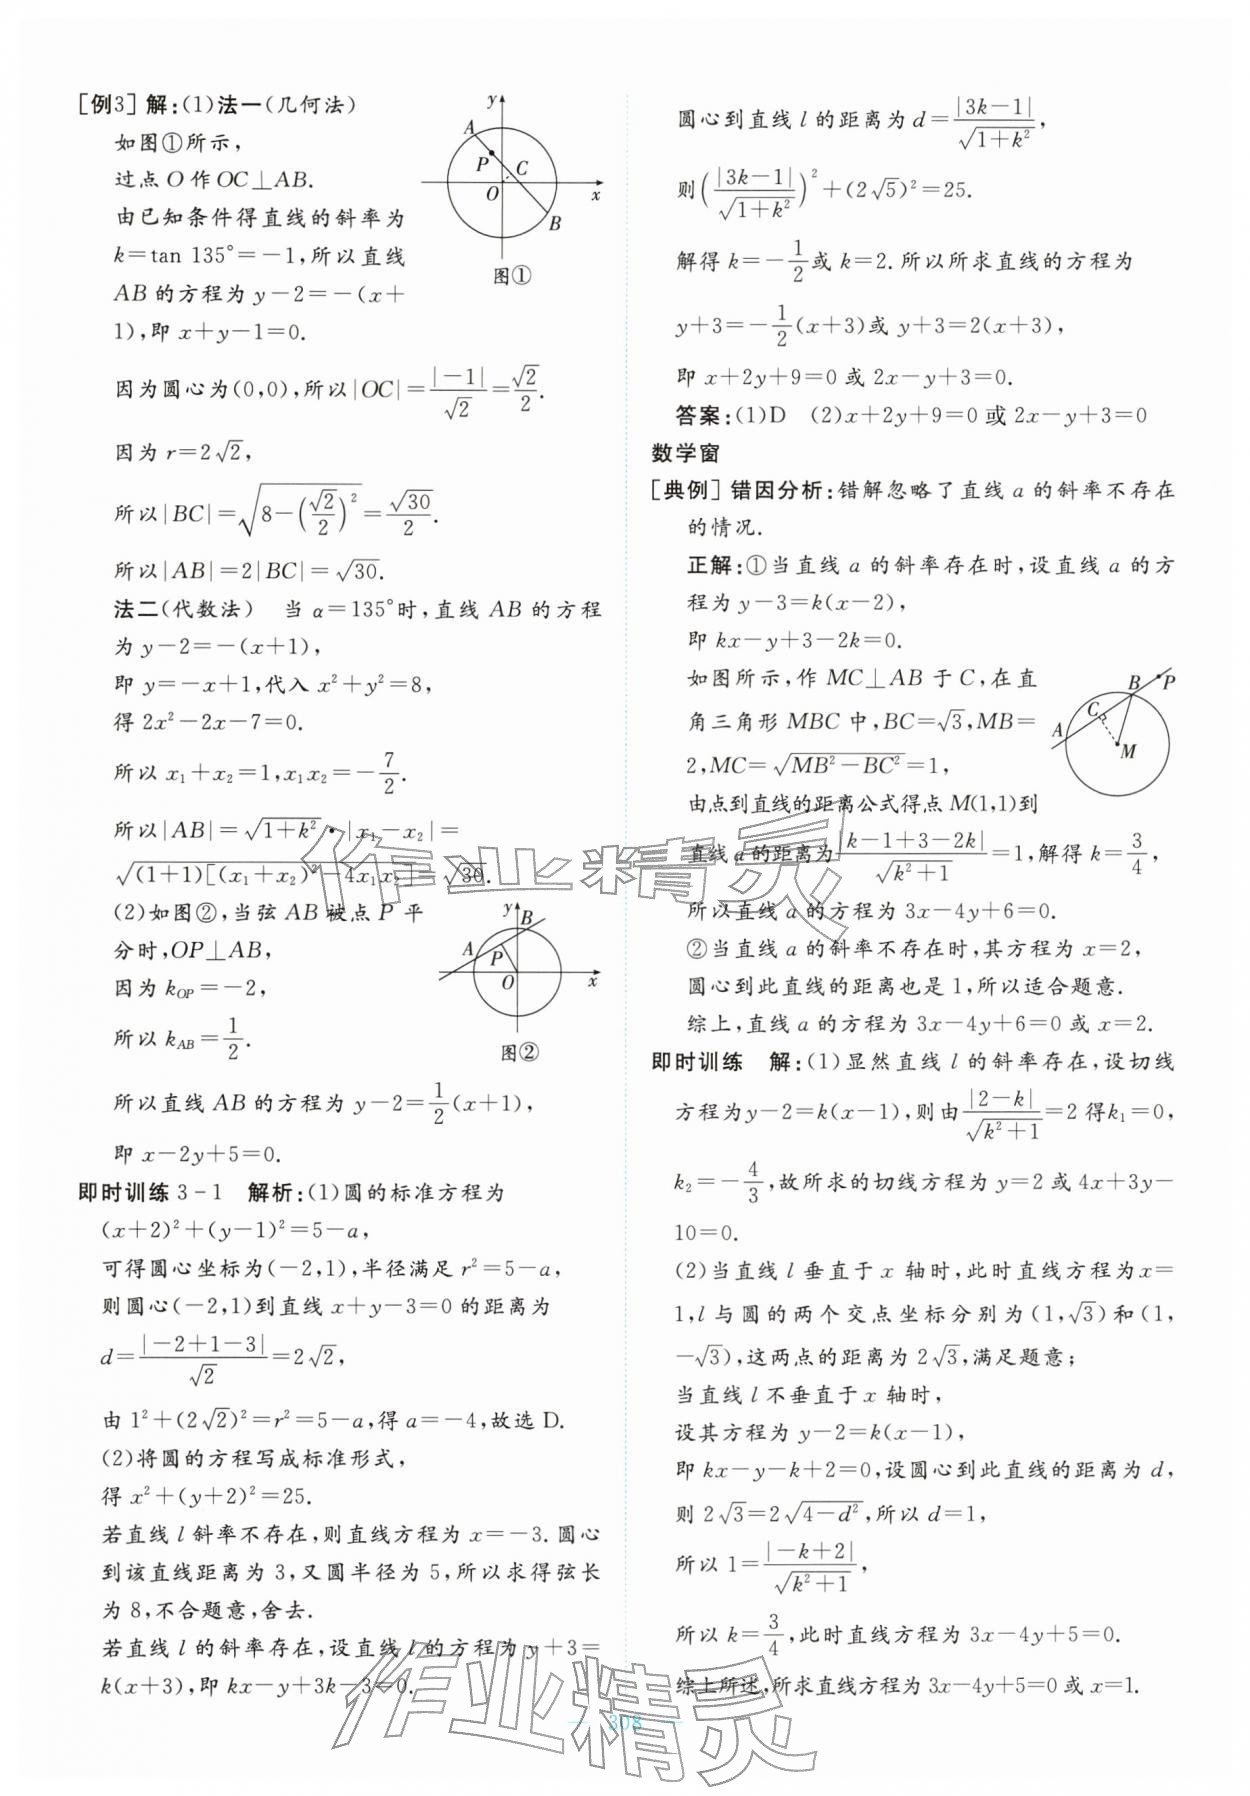 [例3] 解:(1)法一(几何法)
如图①所示，
过点 O 作 OC⊥AB.
由已知条件得直线的斜率为
k=tan 135°=-1,所以直线
AB 的方程为 y-2=-(x+
1),即 x+y-1=0.
y
A
P
C
O
x
B
图①
因为圆心为(0,0),所以|OC|=|-1|/√2=√2/2.
因为 r=2√2,
所以|BC|=√(8-(√2/2)²)=√30/2.
所以|AB|=2|BC|=√30.
法二(代数法) 当 α=135°时,直线 AB 的方程
为 y-2=-(x+1),
即 y=-x+1,代入 x²+y²=8,
得 2x²-2x-7=0.
所以 x₁+x₂=1,x₁x₂=-7/2.
所以|AB|=√(1+k²)·|x₁-x₂|=
√((1+1)[(x₁+x₂)²-4x₁x₂])=√30.
(2)如图②,当弦 AB 被点 P 平
分时,OP⊥AB,
因为 k_OP=-2,
所以 k_AB=1/2.
y
B
A
P
O
x
图②
所以直线 AB 的方程为 y-2=1/2(x+1),
即 x-2y+5=0.
即时训练 3-1 解析:(1)圆的标准方程为
(x+2)²+(y-1)²=5-a,
可得圆心坐标为(-2,1),半径满足 r²=5-a,
则圆心(-2,1)到直线 x+y-3=0 的距离为
d=|-2+1-3|/√2=2√2,
由 1²+(2√2)²=r²=5-a,得 a=-4,故选 D.
(2)将圆的方程写成标准形式,
得 x²+(y+2)²=25.
若直线 l 斜率不存在,则直线方程为 x=-3.圆心
到该直线距离为 3,又圆半径为 5,所以求得弦长
为 8,不合题意,舍去.
若直线 l 的斜率存在,设直线 l 的方程为 y+3=
k(x+3),即 kx-y+3k-3=0.
圆心到直线 l 的距离为 d=|3k-1|/√(1+k²),
则(|3k-1|/√(1+k²))²+(2√5)²=25.
解得 k=-1/2或 k=2.所以所求直线的方程为
y+3=-1/2(x+3)或 y+3=2(x+3),
即 x+2y+9=0 或 2x-y+3=0.
答案:(1)D (2)x+2y+9=0 或 2x-y+3=0
数学窗
[典例] 错因分析:错解忽略了直线 a 的斜率不存在
的情况.
正解:①当直线 a 的斜率存在时,设直线 a 的方
程为 y-3=k(x-2),
即 kx-y+3-2k=0.
如图所示,作 MC⊥AB 于 C,在直
角三角形 MBC 中,BC=√3,MB=
2,MC=√(MB²-BC²)=1,
B
P
C
A
M
由点到直线的距离公式得点 M(1,1)到
直线 a 的距离为|k-1+3-2k|/√(k²+1)=1,解得 k=3/4,
所以直线 a 的方程为 3x-4y+6=0.
②当直线 a 的斜率不存在时,其方程为 x=2,
圆心到此直线的距离也是 1,所以适合题意.
综上,直线 a 的方程为 3x-4y+6=0 或 x=2.
即时训练 解:(1)显然直线 l 的斜率存在,设切线
方程为y-2=k(x-1),则由|2-k|/√(k²+1)=2 得k₁=0,
k₂=-4/3,故所求的切线方程为 y=2 或 4x+3y-
10=0.
(2)当直线 l 垂直于 x 轴时,此时直线方程为 x=
1,l 与圆的两个交点坐标分别为(1,√3)和(1,
-√3),这两点的距离为 2√3,满足题意;
当直线 l 不垂直于 x 轴时,
设其方程为 y-2=k(x-1),
即 kx-y-k+2=0,设圆心到此直线的距离为 d,
则 2√3=2√(4-d²),所以 d=1,
所以 1=|-k+2|/√(k²+1),
所以 k=3/4,此时直线方程为 3x-4y+5=0.
综上所述,所求直线方程为 3x-4y+5=0 或 x=1.
308
作业精灵
作业精灵